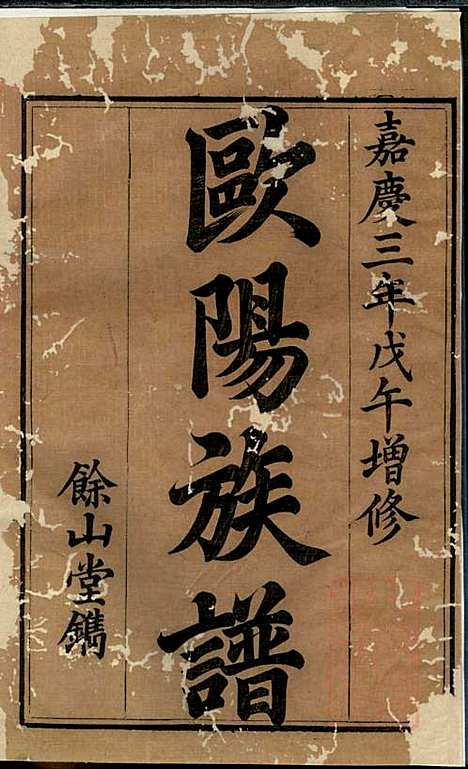 嘉慶三年戊午增修
歐陽族譜
餘山堂鐫